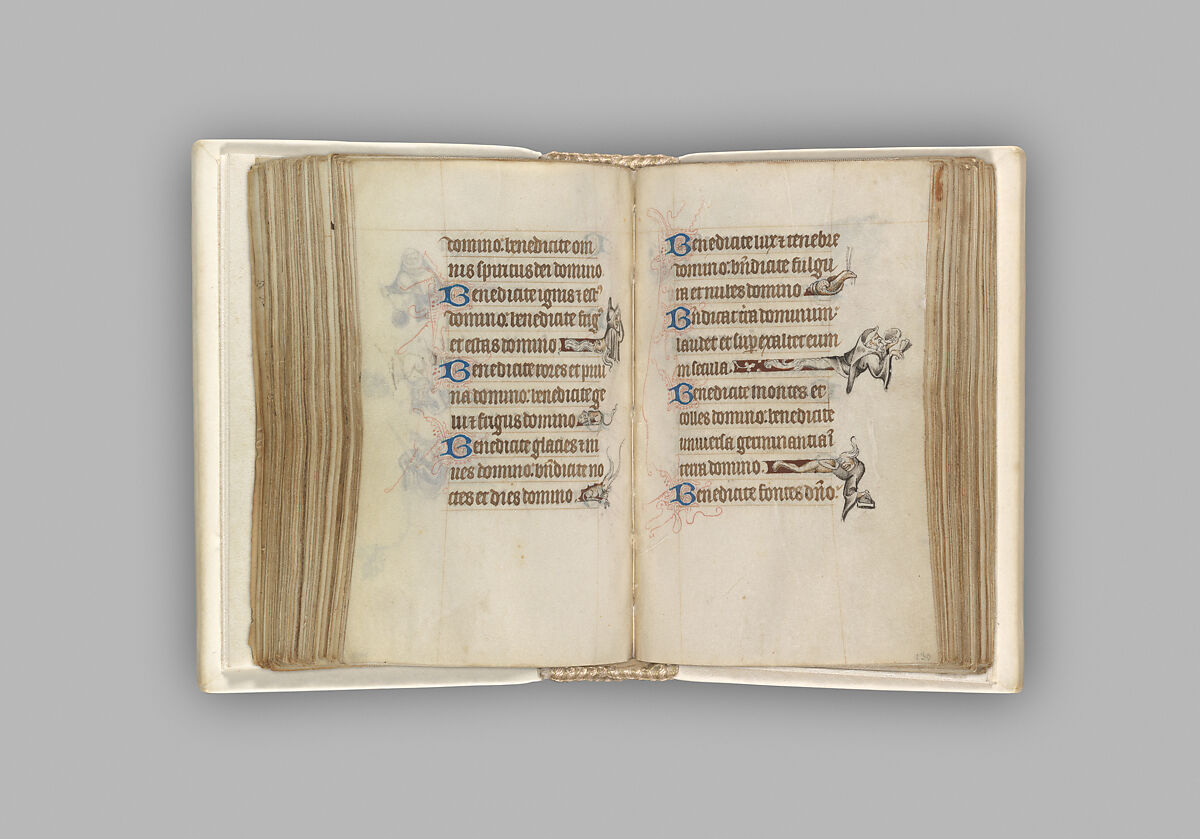 domino. benedicite om
nis spiritus dei domino.
Benedicite ignis ⁊ est᾽
domino. benedicite frig᾽
et estas domino.
Benedicite rores et prui
na domino. benedicite ge
lu ⁊ frigus domino.
Benedicite glacies ⁊ ni
ues domino. bñdicite no
ctes et dies domino.
Benedicite lux ⁊ tenebre
domino. bñdicite fulgu
ra et nubes domino
Bñdicat t̃ra dominum:
laudet et sup exaltet eum
in secula.
Benedicite montes et
colles domino. benedicite
uniuersa germinantia ĩ
terra domino.
Benedicite fontes dño: